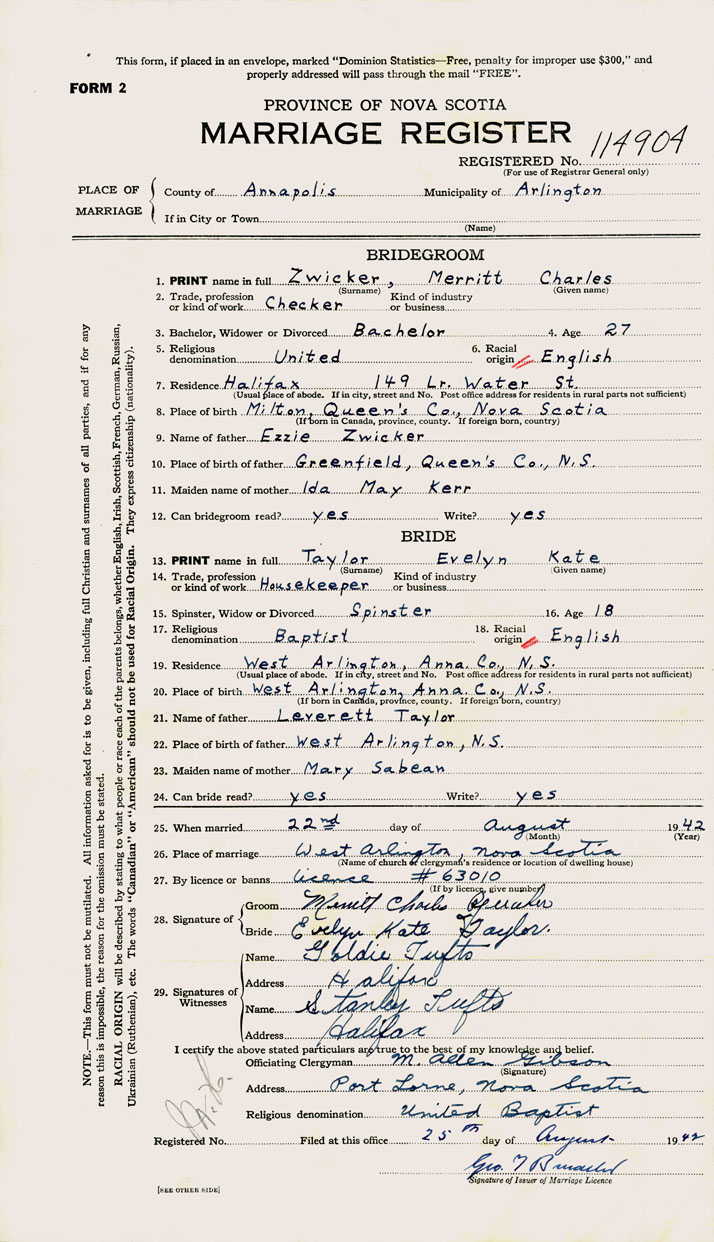 This form, if placed in an envelope, marked "Dominion Statistics—Free, penalty for improper use $300," and
properly addressed will pass through the mail "FREE".
FORM 2
PROVINCE OF NOVA SCOTIA
MARRIAGE REGISTER
REGISTERED No. 114904
(For use of Registrar General only)
PLACE OF MARRIAGE
County of Annapolis Municipality of Arlington
If in City or Town
(Name)
BRIDEGROOM
1. PRINT name in full Zwicker, Merritt Charles
(Surname) (Given name)
2. Trade, profession or kind of work Checker Kind of industry or business
3. Bachelor, Widower or Divorced Bachelor 4. Age 27
5. Religious denomination United 6. Racial origin English
7. Residence Halifax 149 Lr. Water St.
(Usual place of abode. If in city, street and No. Post office address for residents in rural parts not sufficient)
8. Place of birth Milton, Queen's Co., Nova Scotia
(If born in Canada, province, county. If foreign born, country)
9. Name of father Ezzie Zwicker
10. Place of birth of father Greenfield, Queen's Co., N.S.
11. Maiden name of mother Ida May Kerr
12. Can bridegroom read? yes Write? yes
BRIDE
13. PRINT name in full Taylor Evelyn Kate
(Surname) (Given name)
14. Trade, profession or kind of work Housekeeper Kind of industry or business
15. Spinster, Widow or Divorced Spinster 16. Age 18
17. Religious denomination Baptist 18. Racial origin English
19. Residence West Arlington, Anna. Co., N.S.
(Usual place of abode. If in city, street and No. Post office address for residents in rural parts not sufficient)
20. Place of birth West Arlington, Anna. Co., N.S.
(If born in Canada, province, county. If foreign born, country)
21. Name of father Leverett Taylor
22. Place of birth of father West Arlington, N.S.
23. Maiden name of mother Mary Sabean
24. Can bride read? yes Write? yes
25. When married 22nd day of August 1942
(Month) (Year)
26. Place of marriage West Arlington, Nova Scotia
(Name of church or clergyman's residence or location of dwelling house)
27. By licence or banns licence # 63010
(If by licence, give number)
28. Signature of
Groom Merritt Charles Zwicker
Bride Evelyn Kate Taylor.
29. Signatures of Witnesses
Name Goldie Tufts
Address Halifax
Name Stanley Tufts
Address Halifax
I certify the above stated particulars are true to the best of my knowledge and belief.
Officiating Clergyman M. Allen Gibson
(Signature)
Address Port Lorne, Nova Scotia
Religious denomination United Baptist
Registered No. Filed at this office 25th day of August 1942
Geo. T
Signature of Issuer of Marriage Licence
[SEE OTHER SIDE]
NOTE.—This form must not be mutilated. All information asked for is to be given, including full Christian and surnames of all parties, and if for any
reason this is impossible, the reason for the omission must be stated.
RACIAL ORIGIN will be described by stating to what people or race each of the parents belongs, whether English, Irish, Scottish, French, German, Russian,
Ukrainian (Ruthenian), etc. The words "Canadian" or "American" should not be used for Racial Origin. They express citizenship (nationality).